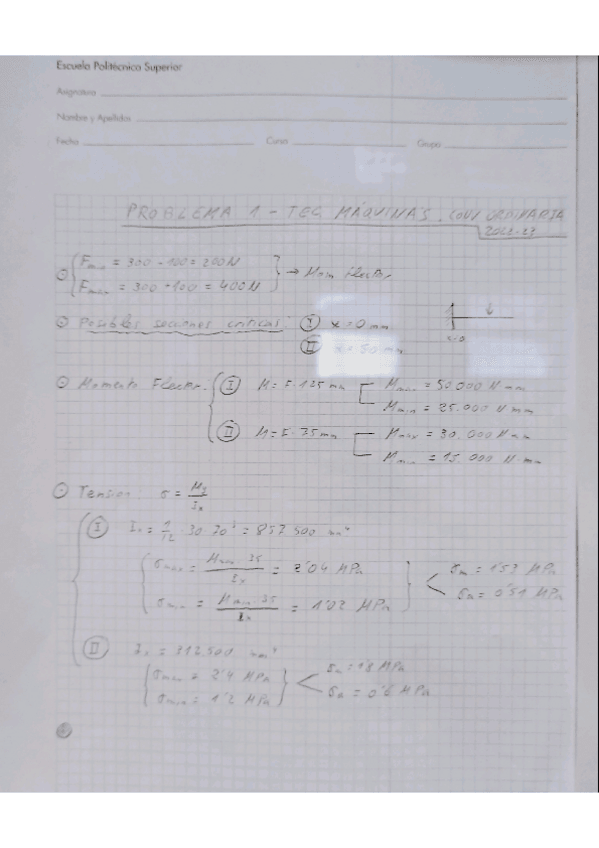 Escuela Politécnica Superior
Asignatura
Nombre y Apellidos
Fecha Curso Grupo
PROBLEMA 1 - TEC MÁQUINAS. CONV ORDINARIA
2022-23
Fmin = 300 - 100 = 200 N
Fmax = 300 + 100 = 400 N → Mom Flector
Posibles secciones críticas: I x = 0 mm
II x = 50 mm
x=0
Momento Flector. I M = F·125 mm Mmax = 50.000 N·mm
Mmin = 25.000 N·mm
II M = F·75 mm Mmax = 30.000 N·mm
Mmin = 15.000 N·mm
Tension: σ =
I Ix = 1/12 · 30·70³ = 857.500 mm⁴
σmax = Mmax·35 / Ix = 2'04 MPa σm = 1'53 MPa
σmin = Mmin·35 / Ix = 1'02 MPa σa = 0'51 MPa
II Ix = 312500 mm⁴
σmax = 2'4 MPa σm = 1'8 MPa
σmin = 1'2 MPa σa = 0'6 MPa